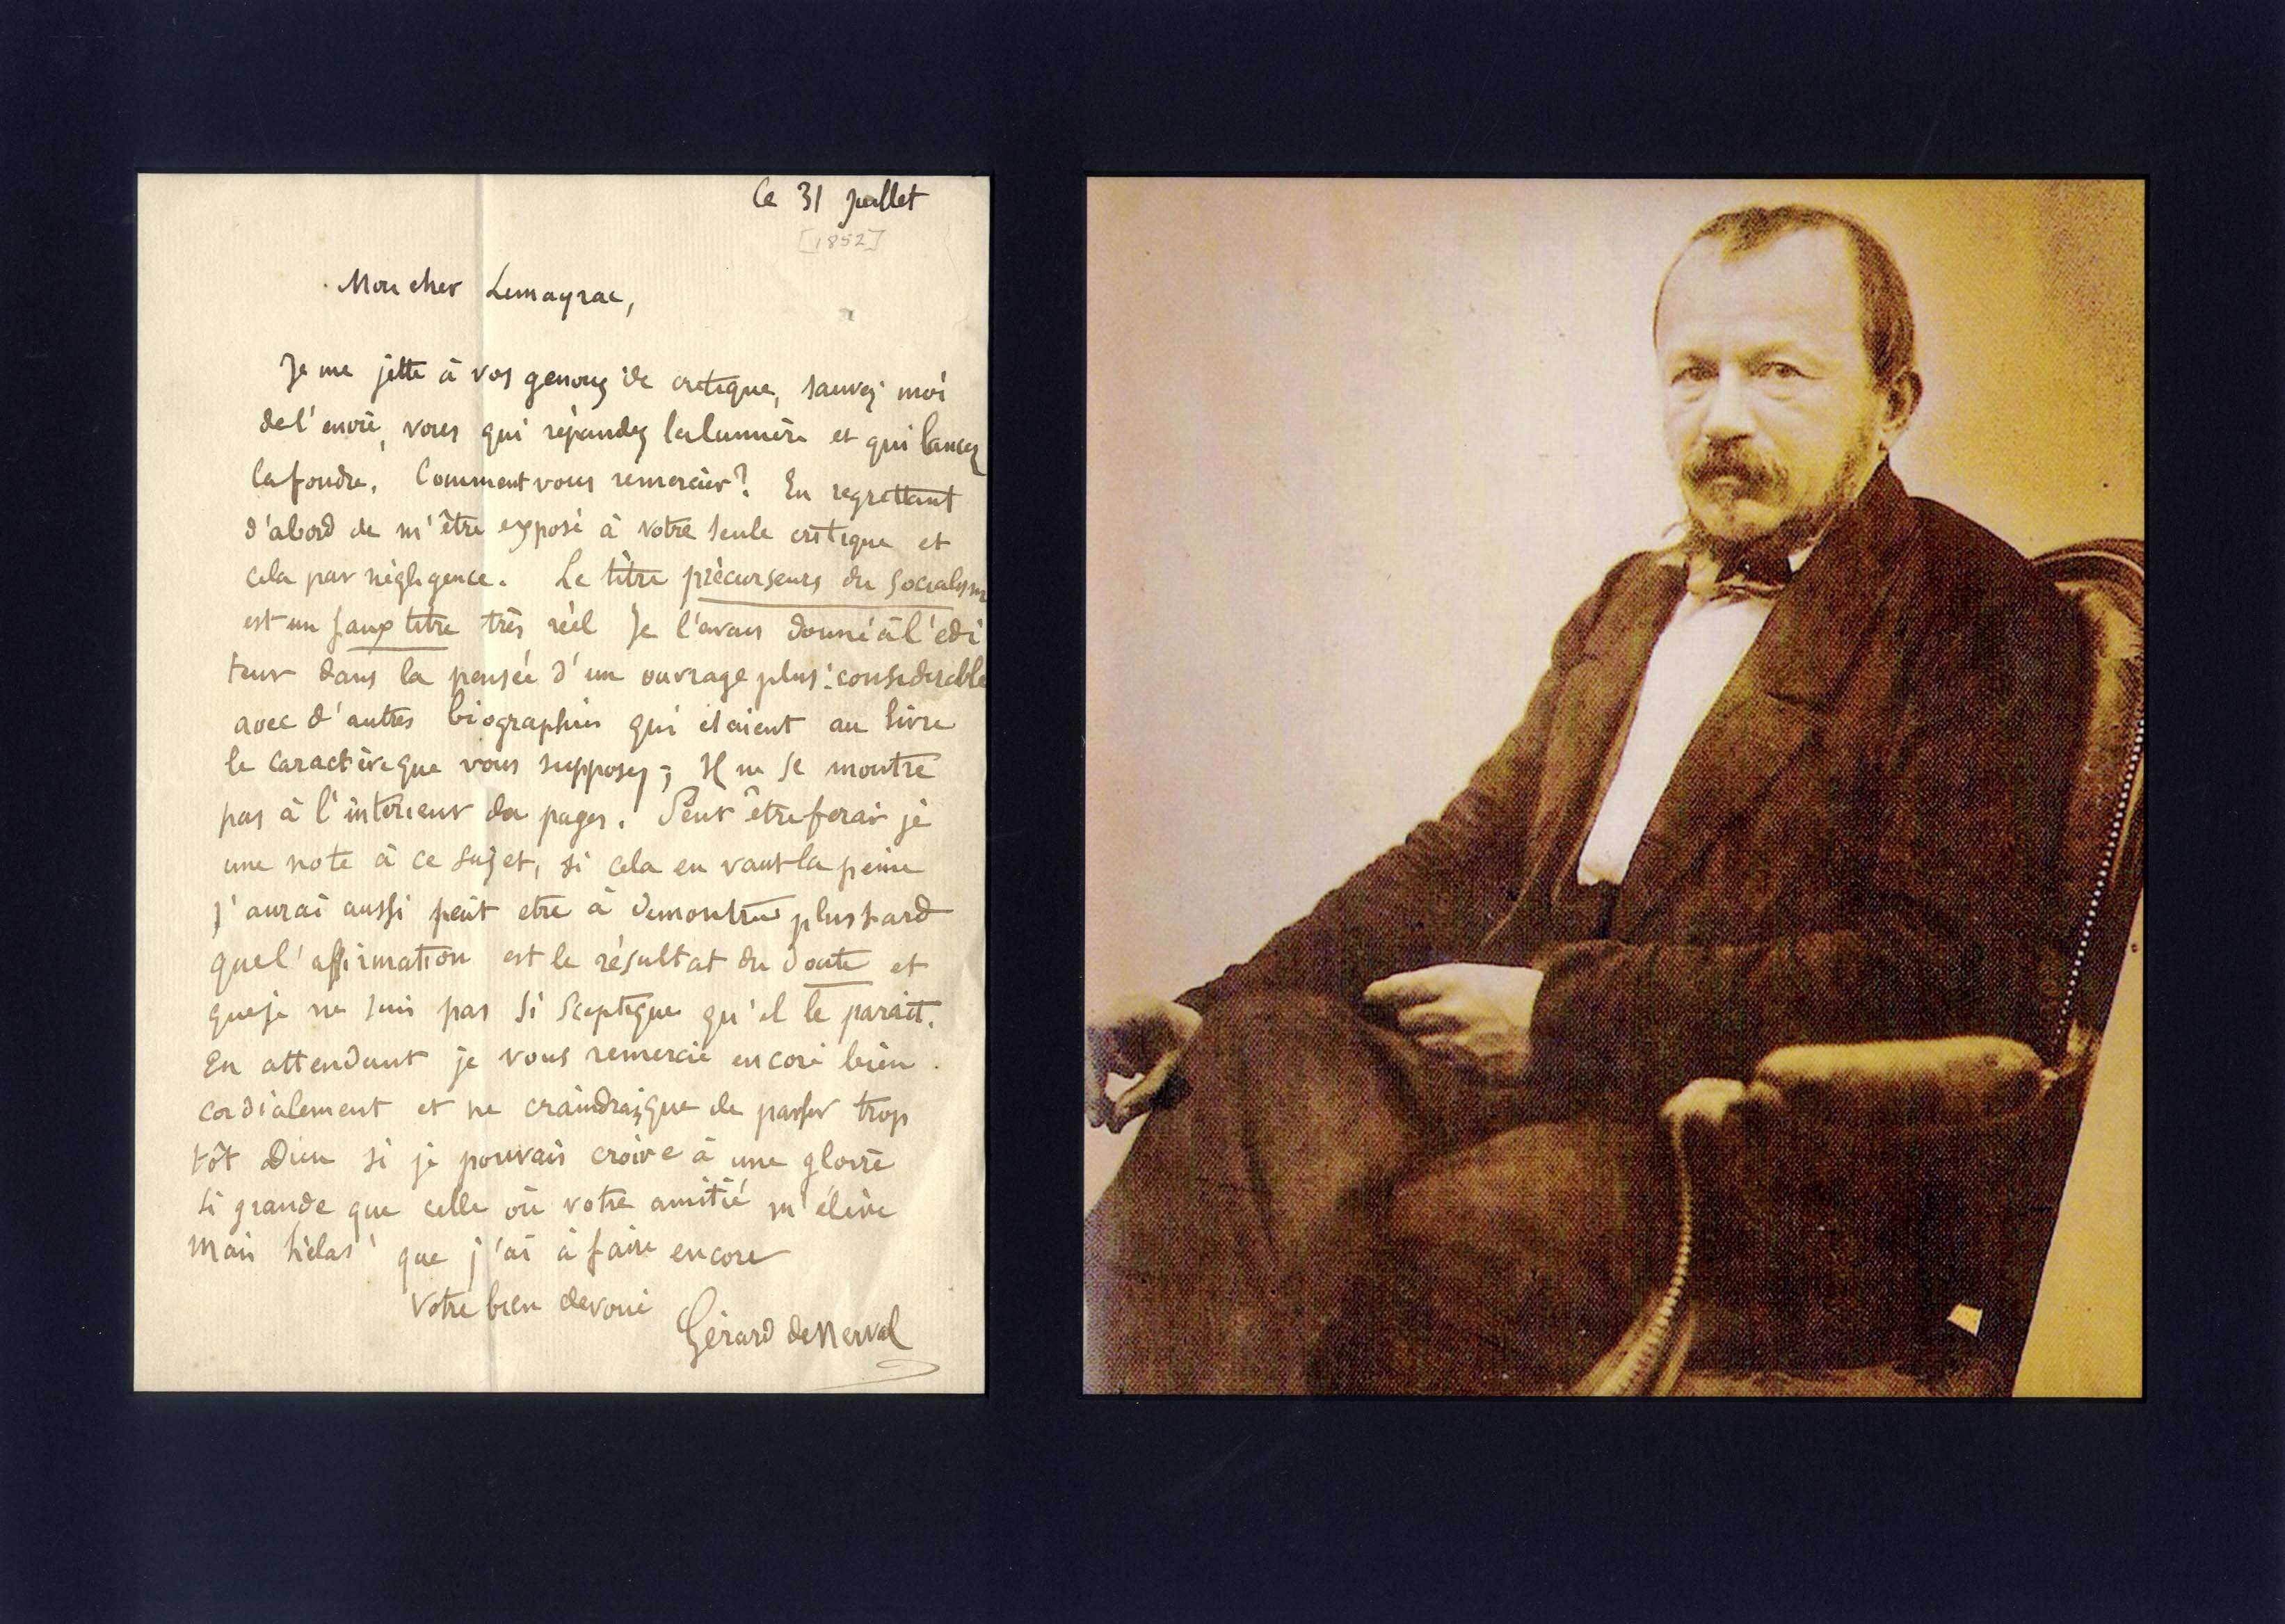 Ce 31 Juillet
[1852]
Mon cher Limayrac,
Je me jette à vos genoux de critique, sauvez moi
de l'envie, vous qui répandez la lumière et qui lancez
la foudre. Comment vous remercier? En regrettant
d'abord de m'être exposé à votre seule critique et
cela par négligence. Le titre précurseurs du Socialism
est un faux titre très réel Je l'avais donné à l'edi
teur dans la pensée d'un ouvrage plus considerable
avec d'autres biographies qui étaient au livre
le caractère que vous supposez; Il ne se montre
pas à l'interieur des pages. Peut être ferai je
une note à ce sujet, si cela en vaut la peine
J'aurai aussi peut etre à démontrer plus tard
que l'affirmation est le résultat du doute et
que je ne suis pas si sceptique qu'il le parait.
En attendant je vous remercie encore bien
cordialement et ne craindrais que de passer trop
tôt Dieu si je pouvais croire à une gloire
si grande que celle où votre amitié m'élève
Mais hélas! que j'ai à faire encore
Votre bien devoué
Gérard de Nerval